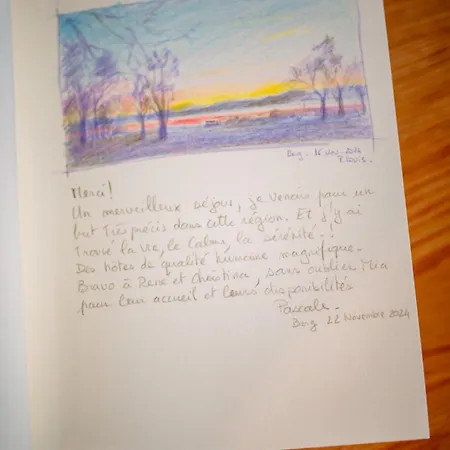 Berg - 16 nov. 2024
P. Louis.
Merci!
Un merveilleux séjour, je venais pour un
but Très précis dans cette région. Et j'y ai
Trouvé la vie, le Calme, la sérénité!!
Des hôtes de qualité humaine magnifique.
Bravo à René et Christina, sans oublier Mia
pour leur accueil et leurs disponibilités
Pascale.
Berg 22 Novembre 2024